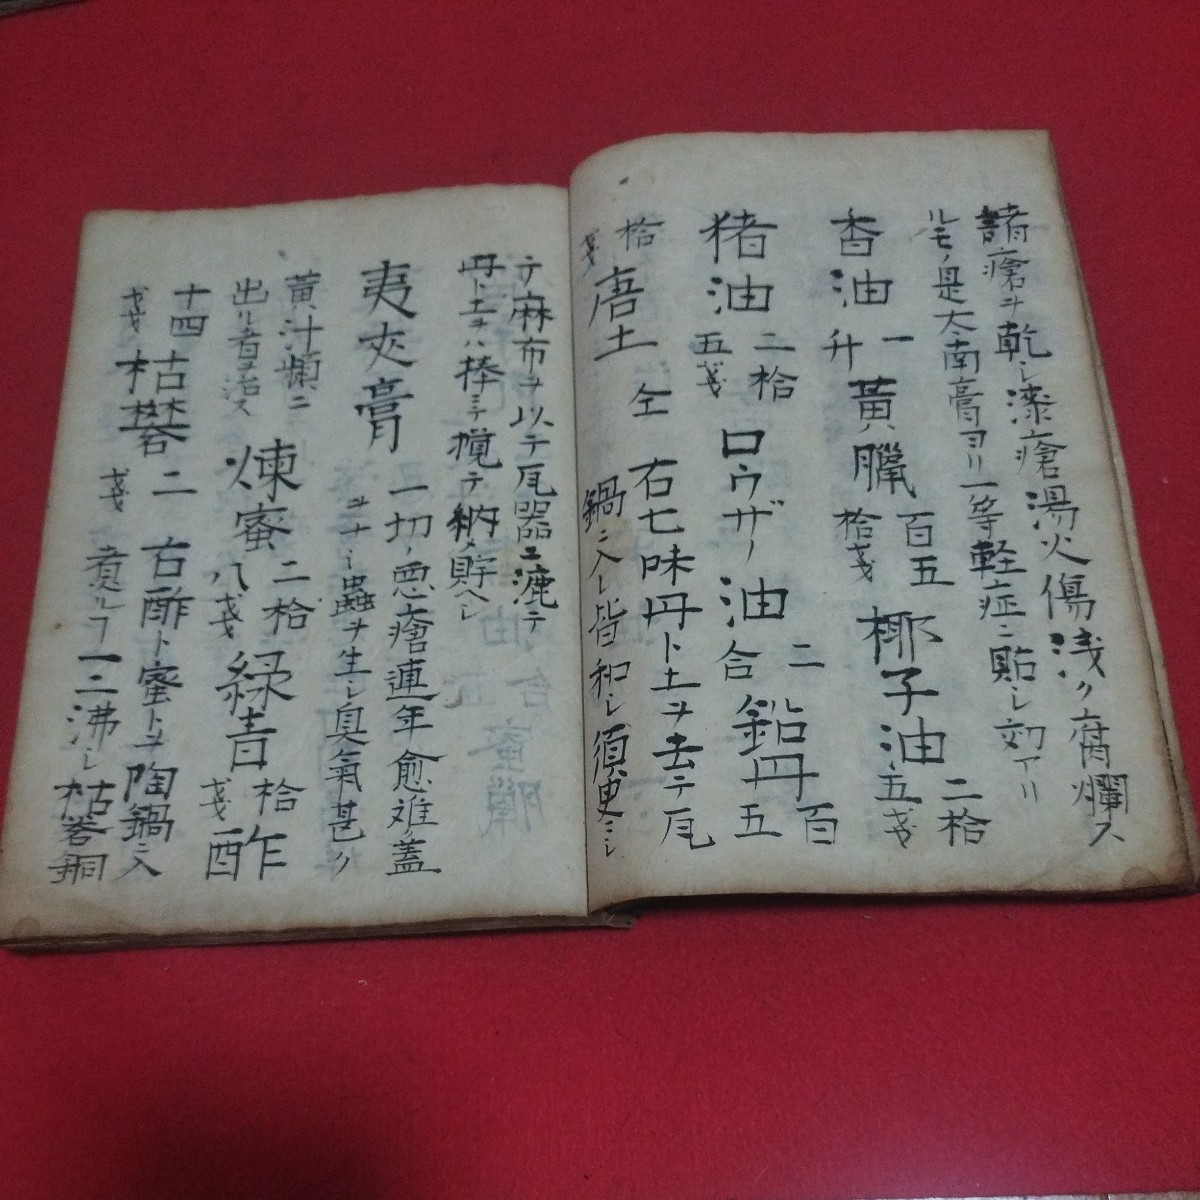 諸瘡ヲ乾シ漆瘡湯火傷浅ク腐爛ス
ルモノ是太南膏ヨリ一等軽症ニ貼シ効アリ
香油 一升 黄臘 百五拾戔 椰子油 二拾五戔
猪油 二拾五戔 ロウザノ油 二合 鉛丹 百五
拾戔 唐土 仝 右七味丹ト土ヲ去テ瓦
鍋ニ入レ皆和シ須臾ニシ
テ麻布ヲ以テ瓦器ニ漉テ
丹ト土ヲハ棒ニテ攪テ納メ貯ヘシ
夷夾膏 一切ノ悪瘡連年愈難ノ蓋
ヲナシ蟲ヲ生シ臭氣甚ク
黄汁頻ニ
出ル者ヲ治ス 煉蜜 二拾八戔 緑青 拾戔 酢
十四戔 枯礬 二戔 右酢ト蜜トヲ陶鍋ニ入
煮ルヿ一二沸シ枯礬銅